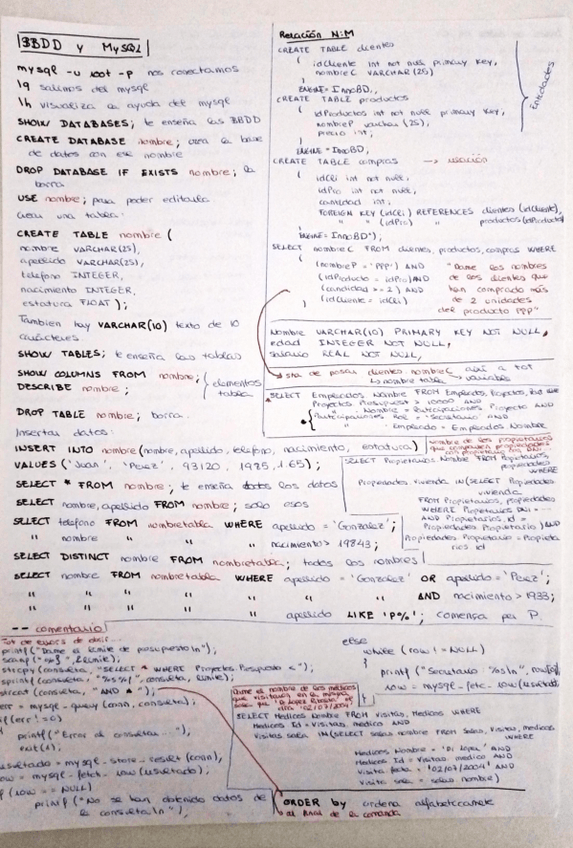 BBDD y MySQL
mysql -u root -p nos conectamos
\q salimos del mysql
\h visualiza la ayuda del mysql
SHOW DATABASES; te enseña las BBDD
CREATE DATABASE nombre; crea la base
de datos con ese nombre
DROP DATABASE IF EXISTS nombre; la
borra
USE nombre; para poder editarla
Crear una tabla:
CREATE TABLE nombre (
nombre VARCHAR(25),
apellido VARCHAR(25),
telefono INTEGER,
nacimiento INTEGER,
estatura FLOAT);
Tambien hay VARCHAR(10) texto de 10
carácteres
SHOW TABLES; te enseña las tablas
SHOW COLUMNS FROM nombre; elementos
DESCRIBE nombre; tabla
DROP TABLE nombre; borra
Insertar datos:
INSERT INTO nombre(nombre, apellido, telefono, nacimiento, estatura)
VALUES ('Juan', 'Perez', 93120, 1975, 1.65);
SELECT * FROM nombre; te enseña todos los datos
SELECT nombre, apellido FROM nombre; solo esos
SELECT telefono FROM nombretabla WHERE apellido = 'Gonzalez';
" nombre " " " nacimiento > 19843;
SELECT DISTINCT nombre FROM nombretabla; todos los nombres
SELECT nombre FROM nombretabla WHERE apellido = 'Gonzalez' OR apellido = 'Perez';
" " " " " AND nacimiento > 1933;
" " " " apellido LIKE 'P%'; comença per P.
-- comentario
printf("Dame el limite de presupuesto\n");
strcpy(consulta, "SELECT * WHERE Proyectos.Presupuesto <");
sprintf(consulta, "%s%f", consulta, limite);
strcat(consulta, "AND *");
err = mysql_query(conn, consulta);
if (err != 0)
{
printf("Error al consulta...");
exit(1);
resultado = mysql_store_result(conn);
row = mysql_fetch_row(resultado);
if (row == NULL)
printf("No se han obtenido datos de
la consulta\n");
Relación N:M
CREATE TABLE clientes
( idCliente int not null primary key,
nombreC VARCHAR(25)
) ENGINE=InnoBD;
CREATE TABLE productos
( idProductos int not null primary key,
nombreP varchar(25),
precio int;
) ENGINE=InnoBD,
Entidades
CREATE TABLE compras → relación
( idCli int not null,
idPro int not null,
cantidad int,
FOREIGN KEY (idCli) REFERENCES clientes (idCliente),
" " (idPro) " productos(idProductos)
) ENGINE=InnoBD";
SELECT nombreC FROM clientes, productos, compras WHERE
( nombreP = 'PPP') AND
(idProducto = idPro) AND
(cantidad >= 2) AND
(idCliente = idCli)
"Dame los nombres
de los clientes que
han comprado más
de 2 unidades
del producto PPP"
Nombre VARCHAR(10) PRIMARY KEY NOT NULL,
edad INTEGER NOT NULL,
salario REAL NOT NULL,
nombre tabla → variables
SELECT Empleados.Nombre FROM Empleados, Proyectos,
Proyectos.Presupuesto > 10000 AND
" .Nombre = Participaciones.Proyecto AND
Participaciones.Rol = 'Secretario' AND
" .Empleado = Empleados.Nombre
Nombre de los propietarios
SELECT Propietarios.Nombre FROM Propietarios,
propiedades
WHERE
Propiedades.Vivienda IN(SELECT Propiedades.
vivienda
FROM Propietarios, Propiedades
AND Propietarios.id =
Propiedades.Propietario) AND
Propiedades.Propietario = Propieta
rios.id
else
while (row != NULL)
{
printf("Secretario: %s\n", row[0]);
row = mysql_fetch_row(resultado);
}
Dime el nombre de los médicos
SELECT Medicos.Nombre FROM visitas, Medicos WHERE
Medicos.Id = Visitas.medico AND
Visitas.sala IN(SELECT salas.nombre FROM salas, Visitas, medicos
WHERE
Medicos.Id = Visitas.medico AND
Visita.fecha = '02/07/2004' AND
Visita.sala = salas.nombre)
ORDER by ordena alfabeticamente
→ al final de la comanda